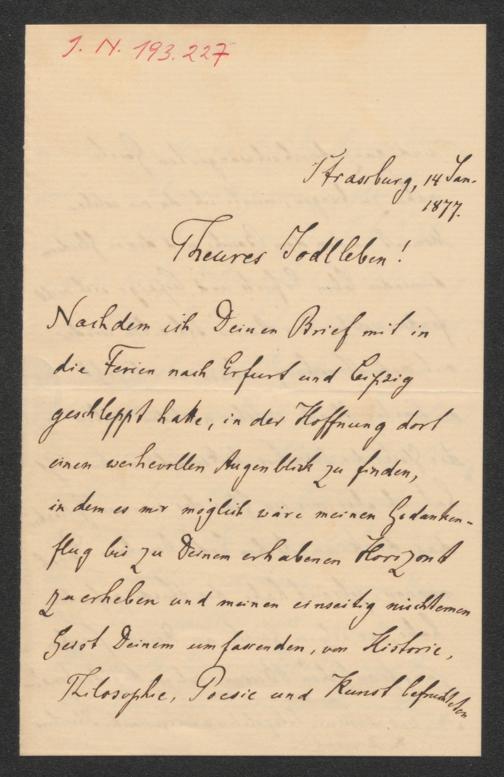 J. N. 193.227
Strassburg, 14 Jan.
1877.
Theures Jodlleben!
Nachdem ich Deinen Brief mit in
die Ferien nach Erfurt und Leipzig
geschleppt hatte, in der Hoffnung dort
einen weihevollen Augenblick zu finden,
in dem es mir möglich wäre meinen Gedanken-
flug bis zu Deinem erhabenen Horizont
zu erheben und meinen einseitig nüchternen
Geist Deinem umfassenden, von Historie,
Philosophie, Poesie und Kunst befruchteten